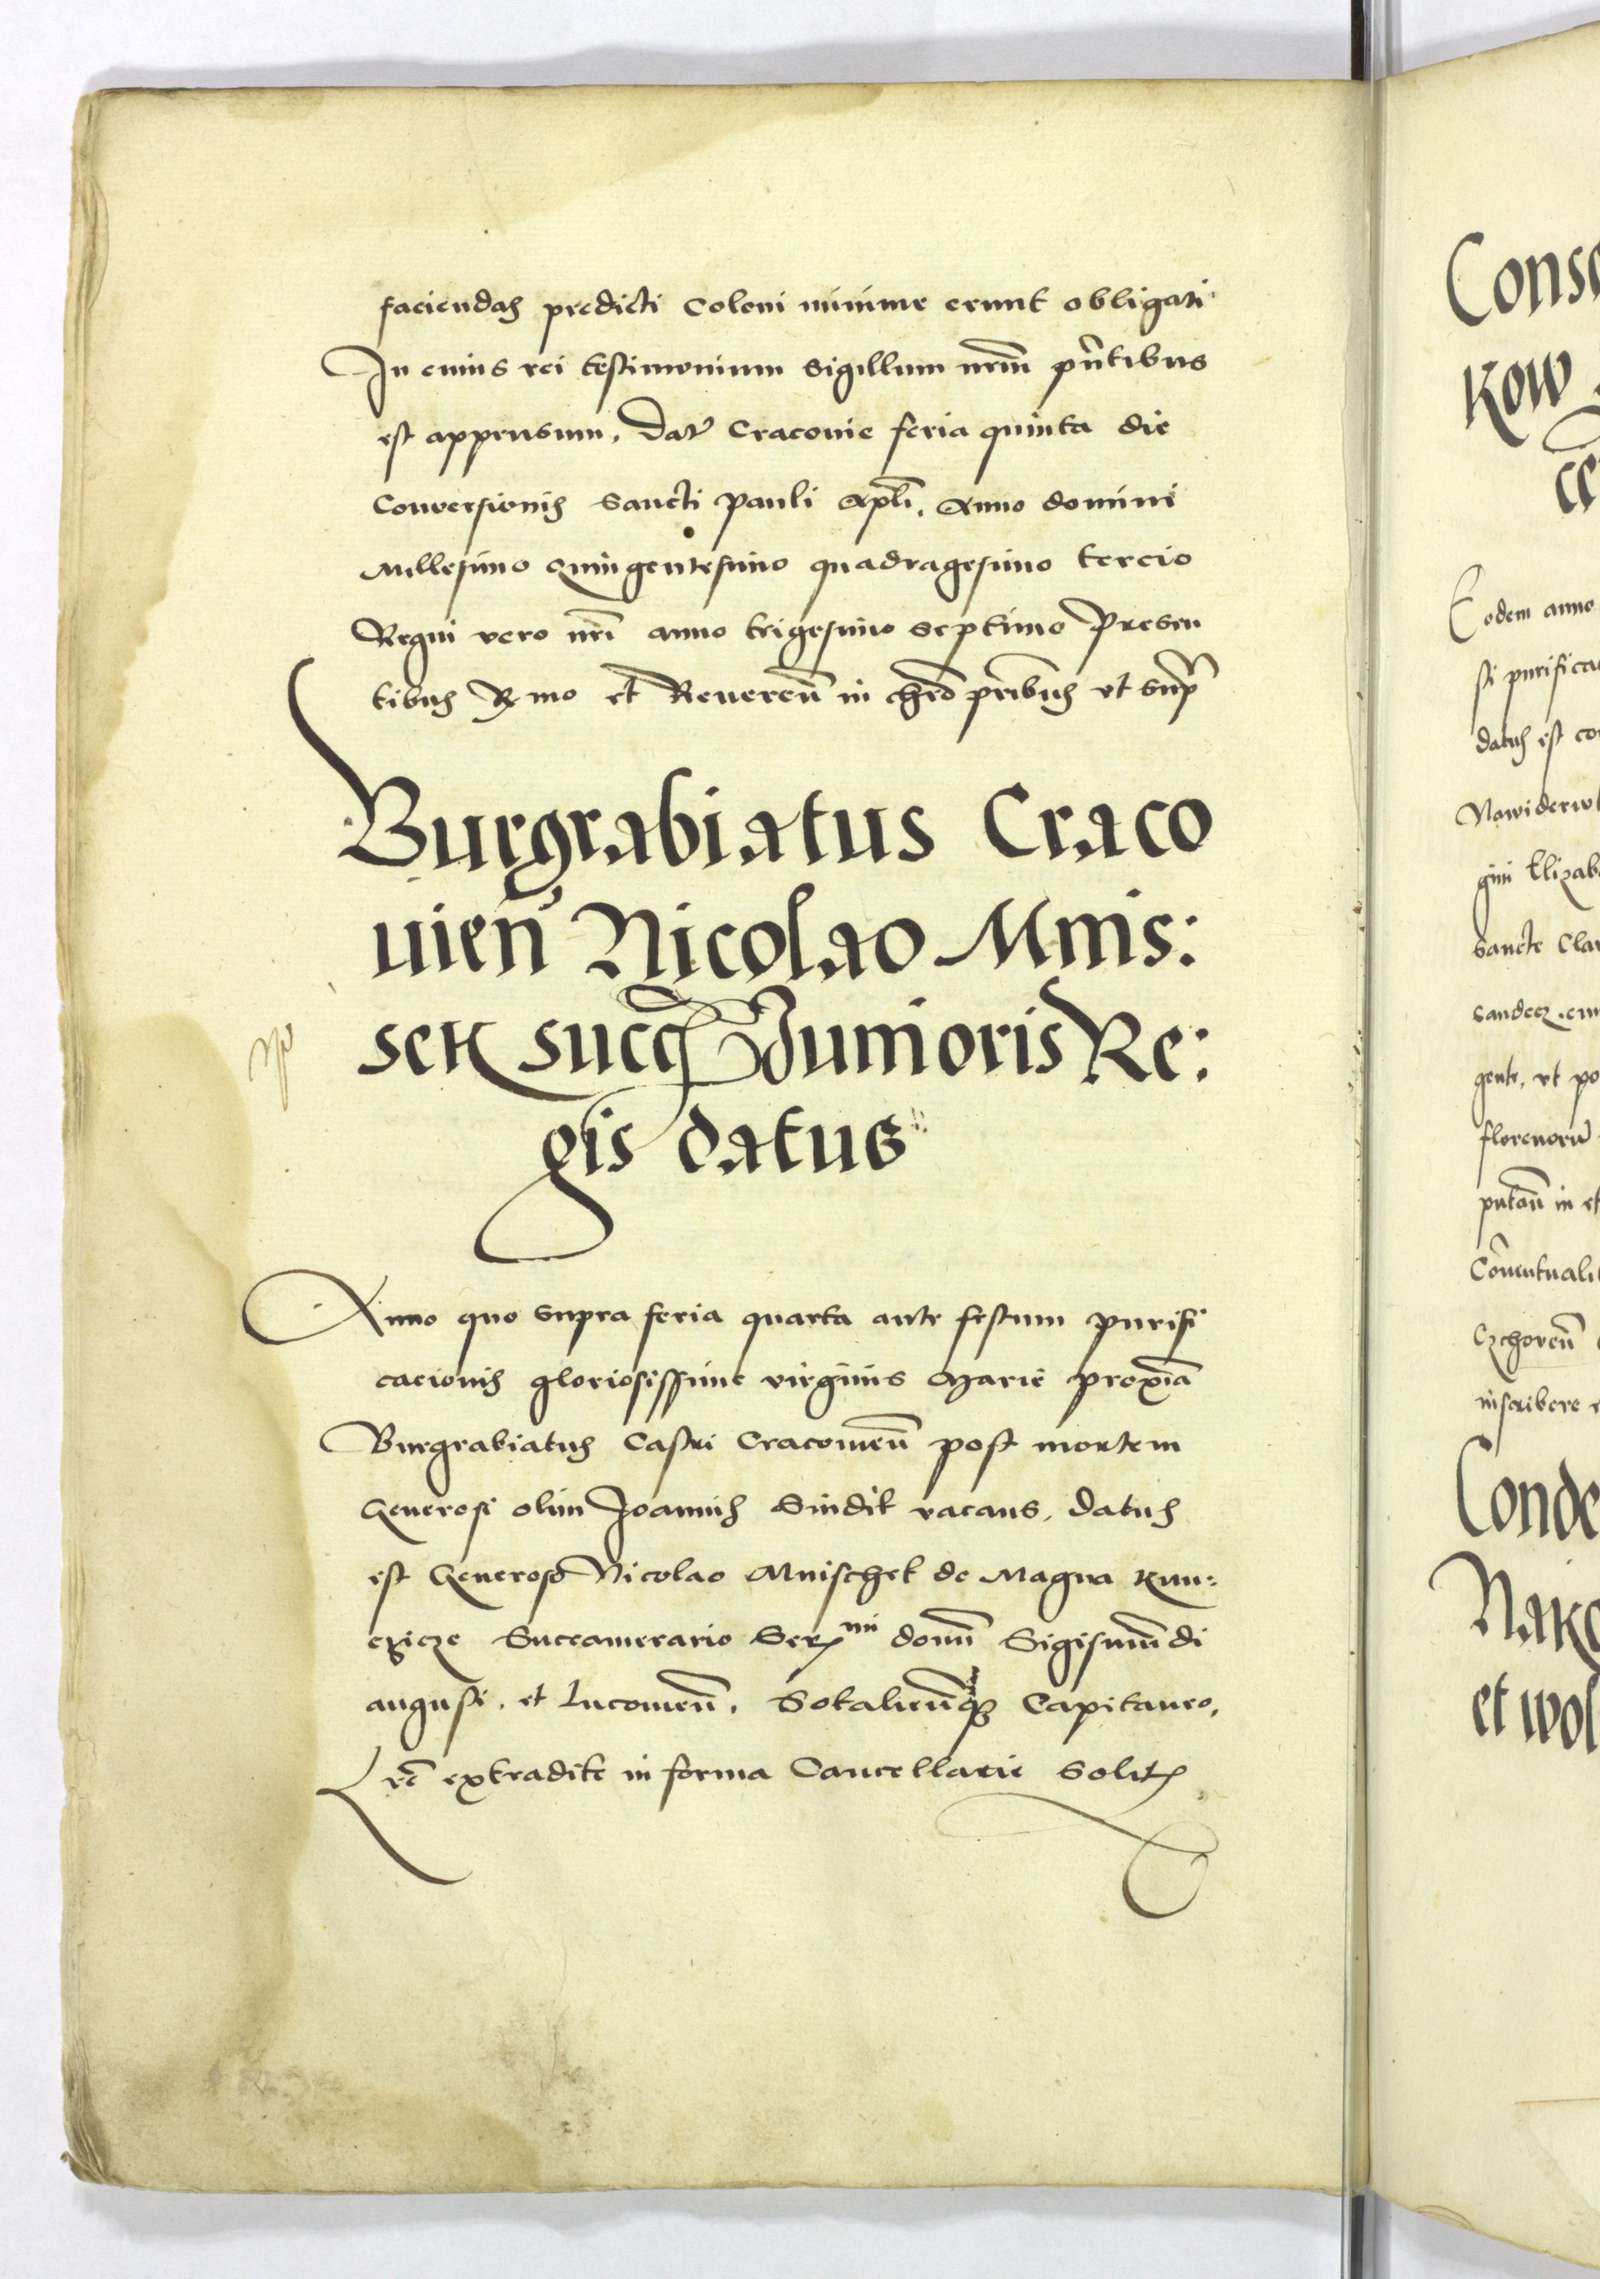 faciendas predicti Coloni minime erunt obligati
In cuius rei testimonium sigillum nrm̄ pn̄tibus
est appensum, Dat̄ Cracovie feria quinta die
Conversionis Sancti Pauli Apl̄i, Anno domini
Millesimo Quingentesimo quadragesimo tercio
Regni vero nr̄i anno trigesimo septimo Presen
tibus R mo et Reueren̄ in chr̄o pr̄ibus vt supr̄
Burgrabiatus Craco
uien̄ Nicolao Mnis:
sek succ̄ Junioris Re:
gis datus
Anno quo supra feria quarta ante festum purifi
cacionis gloriosissime virginis Marie proxīa
Burgrabiatus Castri Cracouien̄ post mortem
Generosi olim Joannis Sindil vacans, datus
est Generoso Nicolao Mnischek de Magna Kun:
czicze Succamerario Ser mi domn̄ Sigismūdi
augusti, et Lucouien̄, Sokalien̄q̨ Capitaneo,
Lr̄e extradite in forma Cancellarie Solit
Conse
kow
ce
Eodem anno
si purifica
datus est co
gini Elizab
sancte Cla
sandecz
gente, vt po
florenorū
in et
Cōuentuali
Czchoreū
inscribere
Conde
Nako
et wol